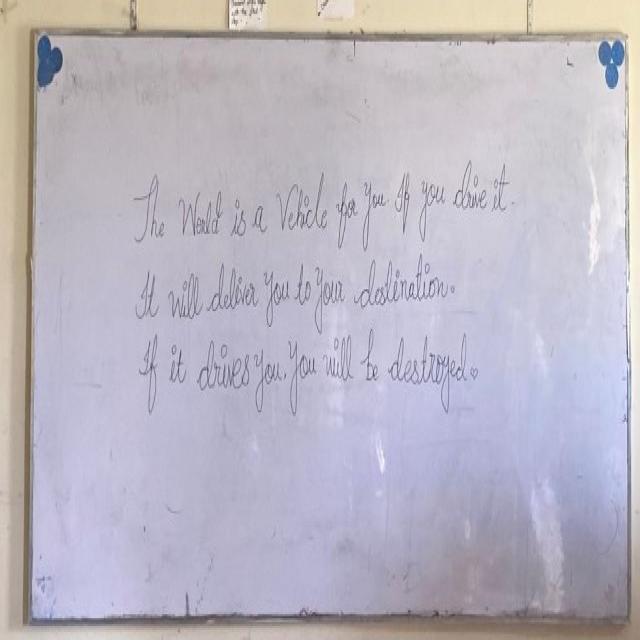 The World is a Vehicle for You If you drive it.
It will deliver You to Your destination.
If it drives You, You will be destroyed.